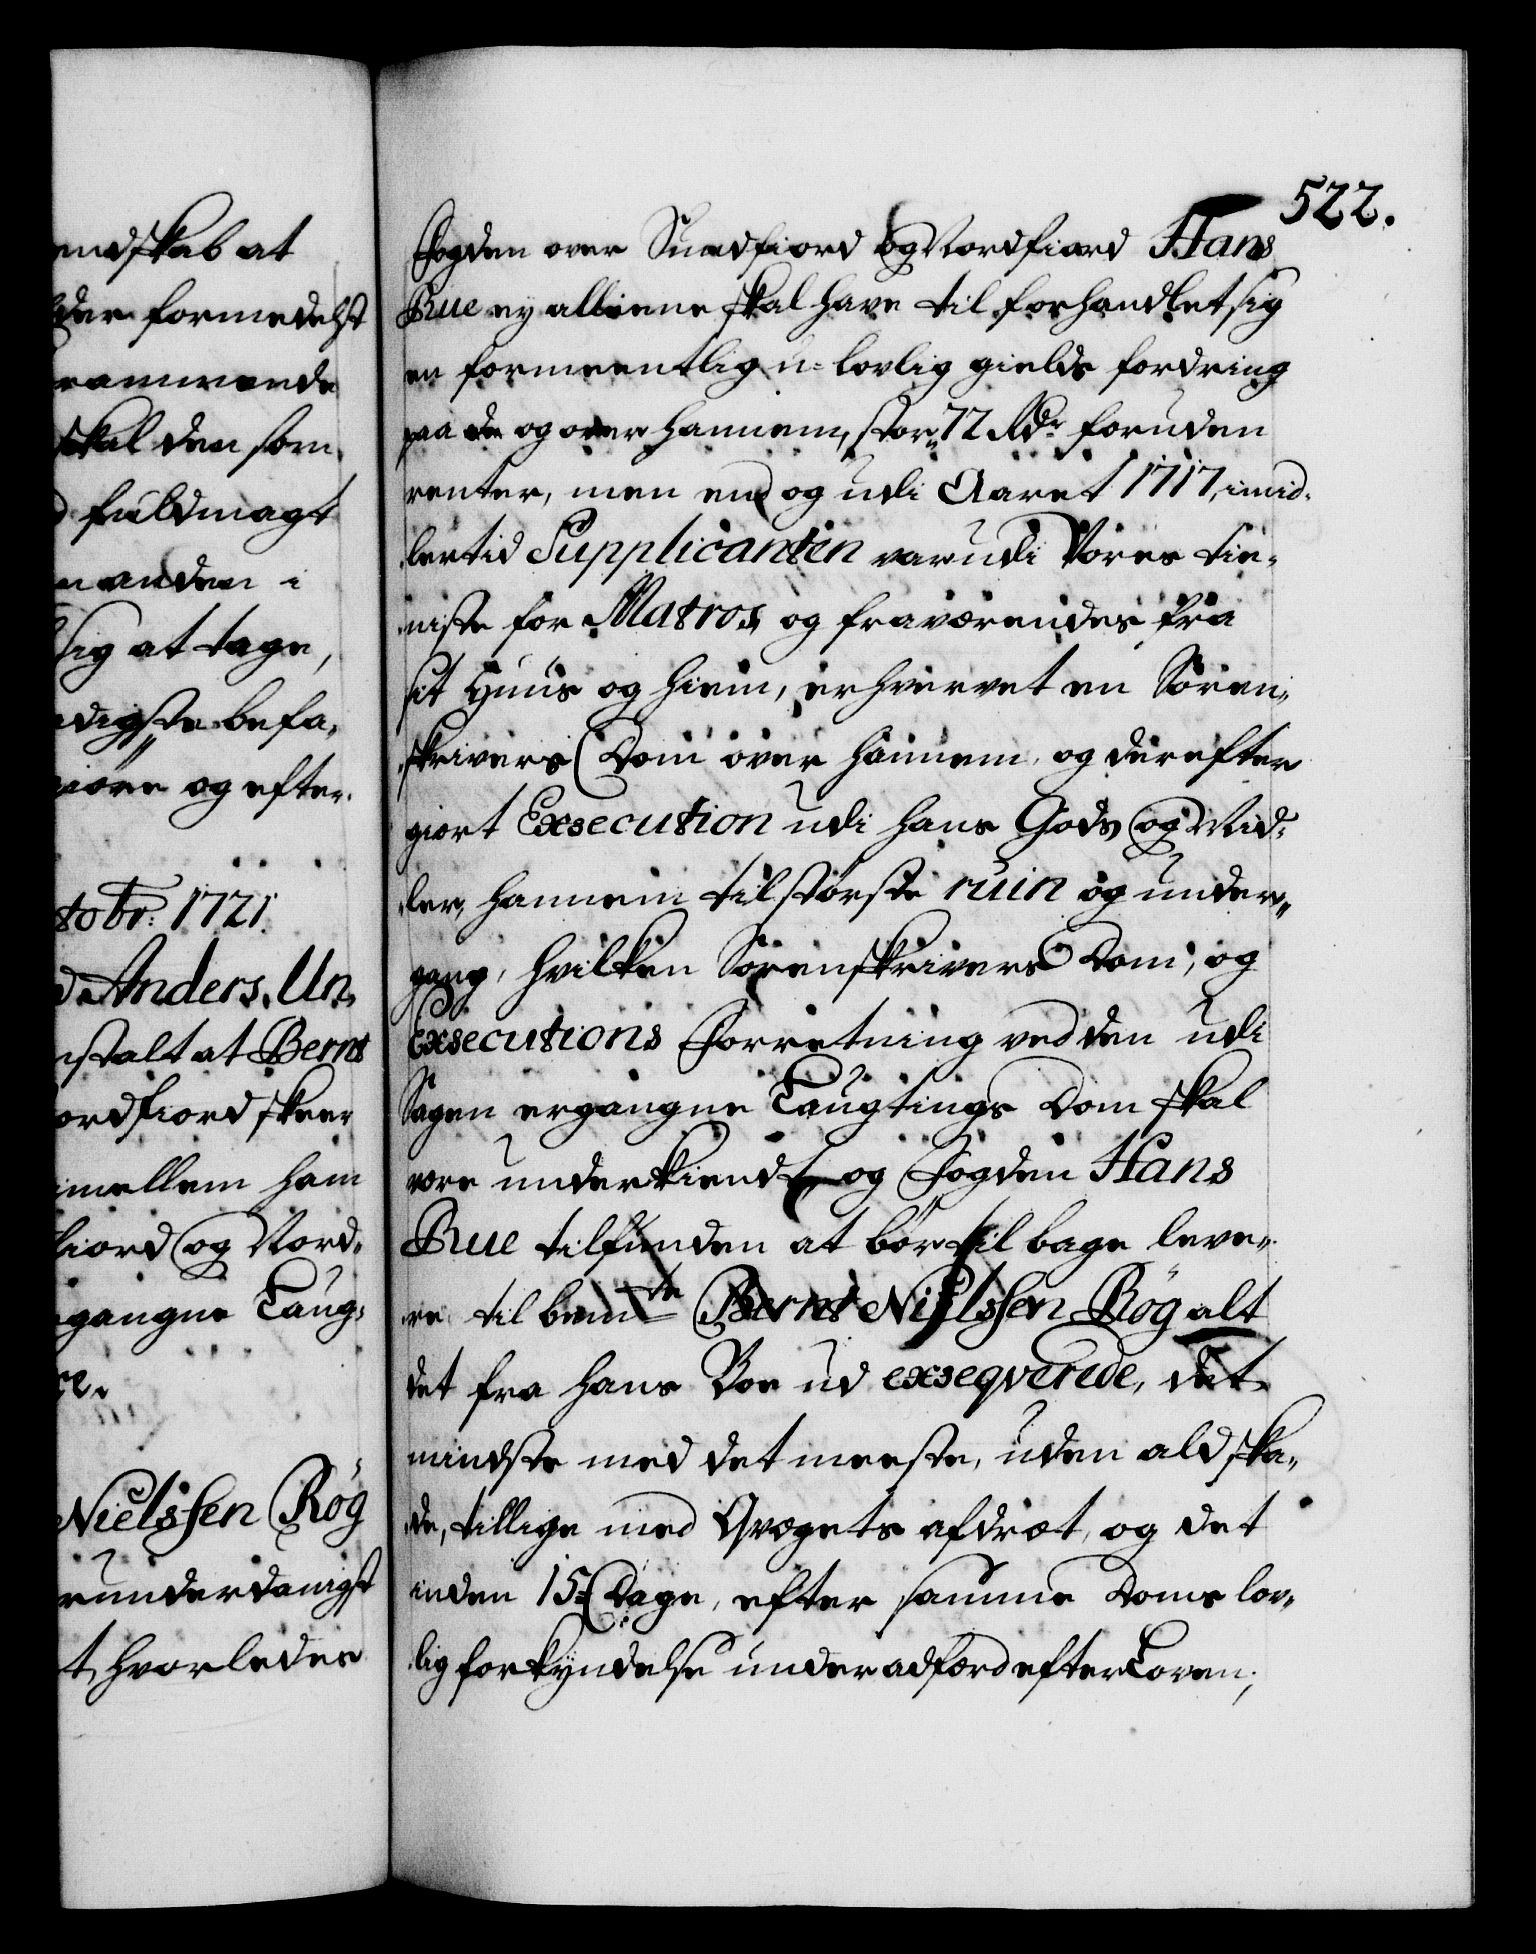 endskab at
der formedelst
ramvende
skal den som
fuldmagt
anden i
sig at tage,
digste befa,
giöre og efter
tobr: 1721.
Anders Un,
stalt at Bernt
ordfiord skeer
imellem ham
fiord og Nord,
gangne Laug,
ce.
Nielssen Røg
runderdanigst
t, hvorledes
522.
Fogden over Sundfiord og Nordfiord Hans
Rue ey alleene skal have til forhandlet sig
en formeentlig u-lovlig gields fordring
paa og over hannem, stor 72 Rdr foruden
renter, men end og udi Aaret 1717, imid-
lertid Supplicanten var udi Vores tie-
niste for Matros, og fraværendes fra
sit Huus og hiem, erhvervet en Soren-
skrivers Dom over hannem, og derefter
giort Exsecution udi hans Gods og Mid-
ler, hannem til største ruin og under-
gang, hvilken Sorenskrivers Dom, og
Exsecutions Forretning ved den udi
Sagen ergangne Laugtings Dom skal
være underkiendt, og Fogden Hans
Rue tilfunden at bør til bage leve-
re til bemte Bernt Nielssen Røg alt
det fra hans Boe ud exseqverede, det
mindste med det meeste, uden ald ska-
de, tillige med Qvægets afdræt, og det
inden 15 Dage, efter samme Doms lov-
lig forkyndelse under adfærd efter Loven;